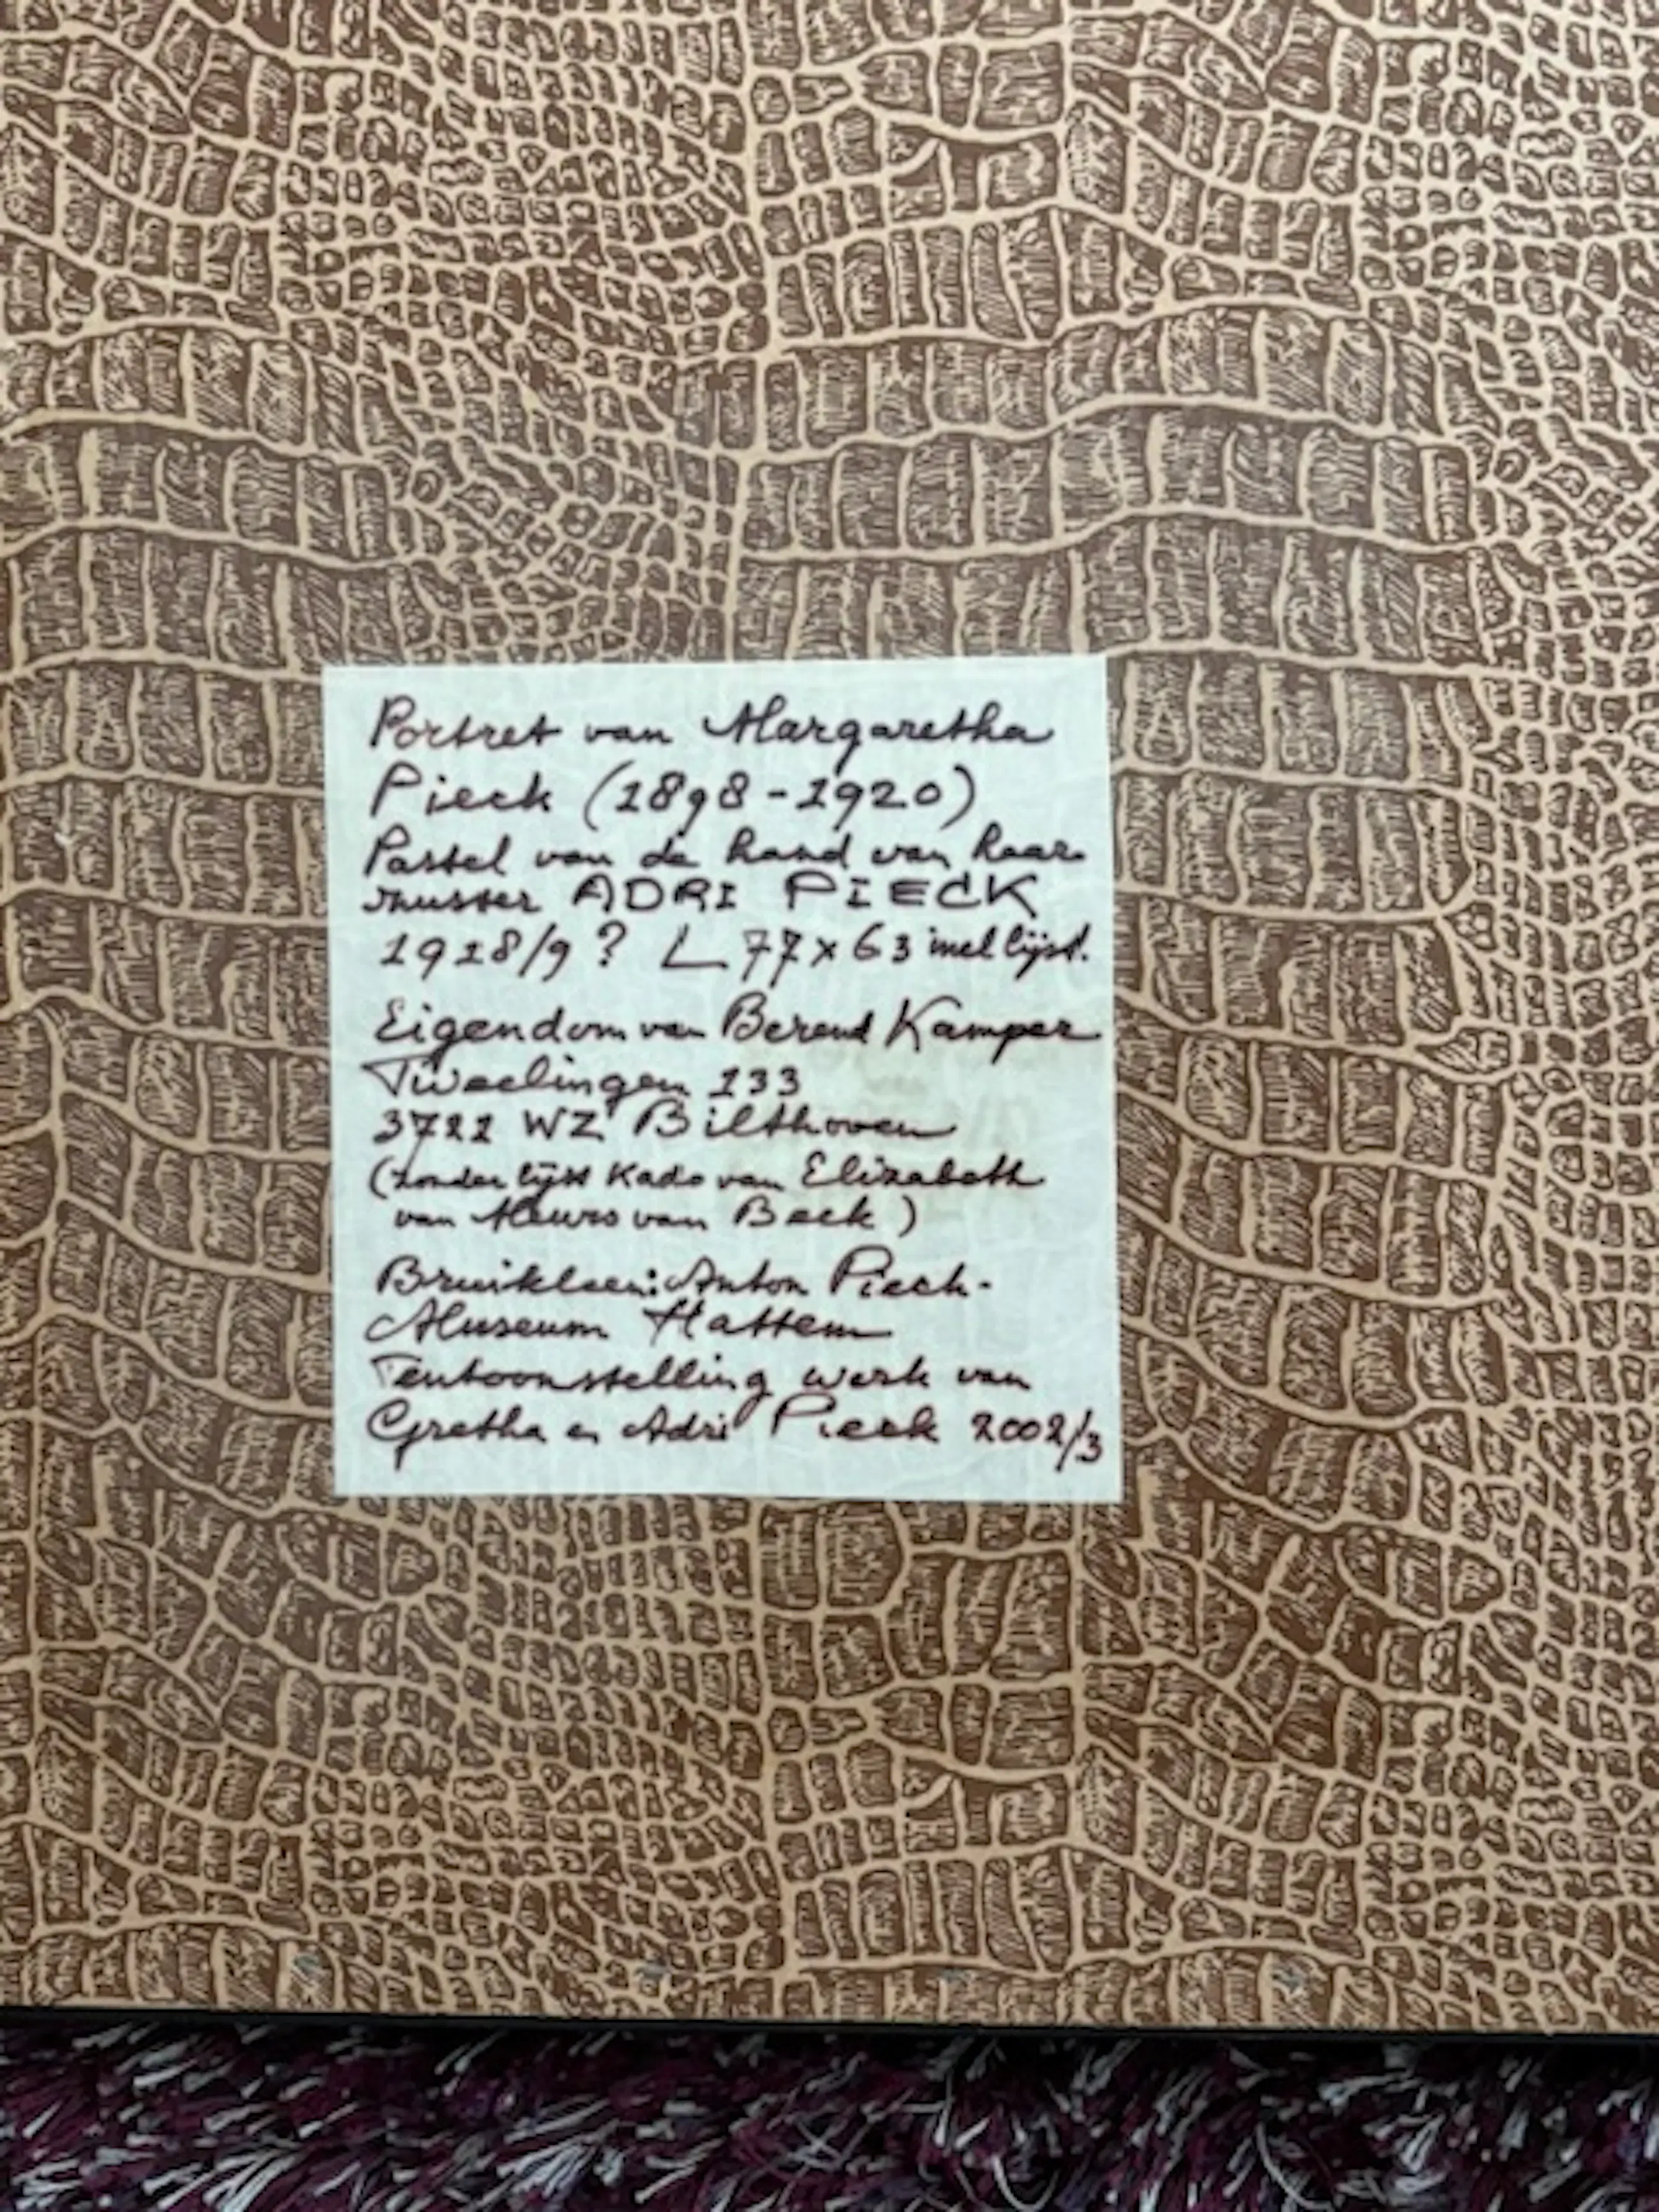 Portret van Margaretha
Pieck (1898-1920)
Pastel van de hand van haar
zuster ADRI PIECK
1918/9? L 77 x 63 met lijst.
Eigendom van Berend Kamper
Tweelingen 133
WZ Bilthoven
(zonder lijst Kado van Elizabeth
van Meurs van Beek)
Bruikleen: Anton Pieck-
Museum Hattem
Tentoonstelling werk van
Gretha en Adri Pieck 2002/3